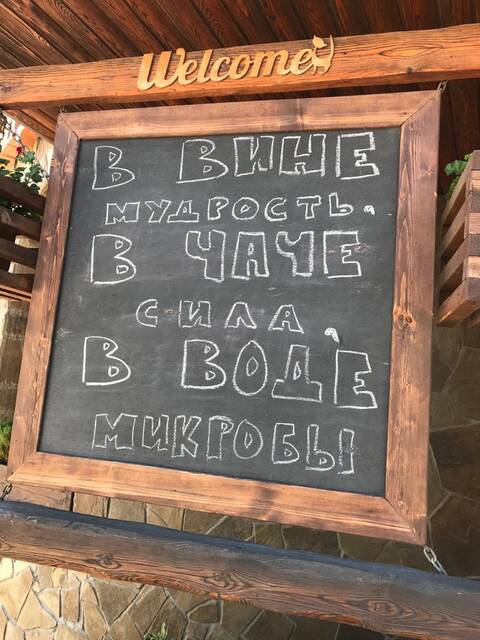 Welcome
В ВИНЕ
МУДРОСТЬ,
В ЧАЧЕ
СИЛА,
В ВОДЕ
МИКРОБЫ